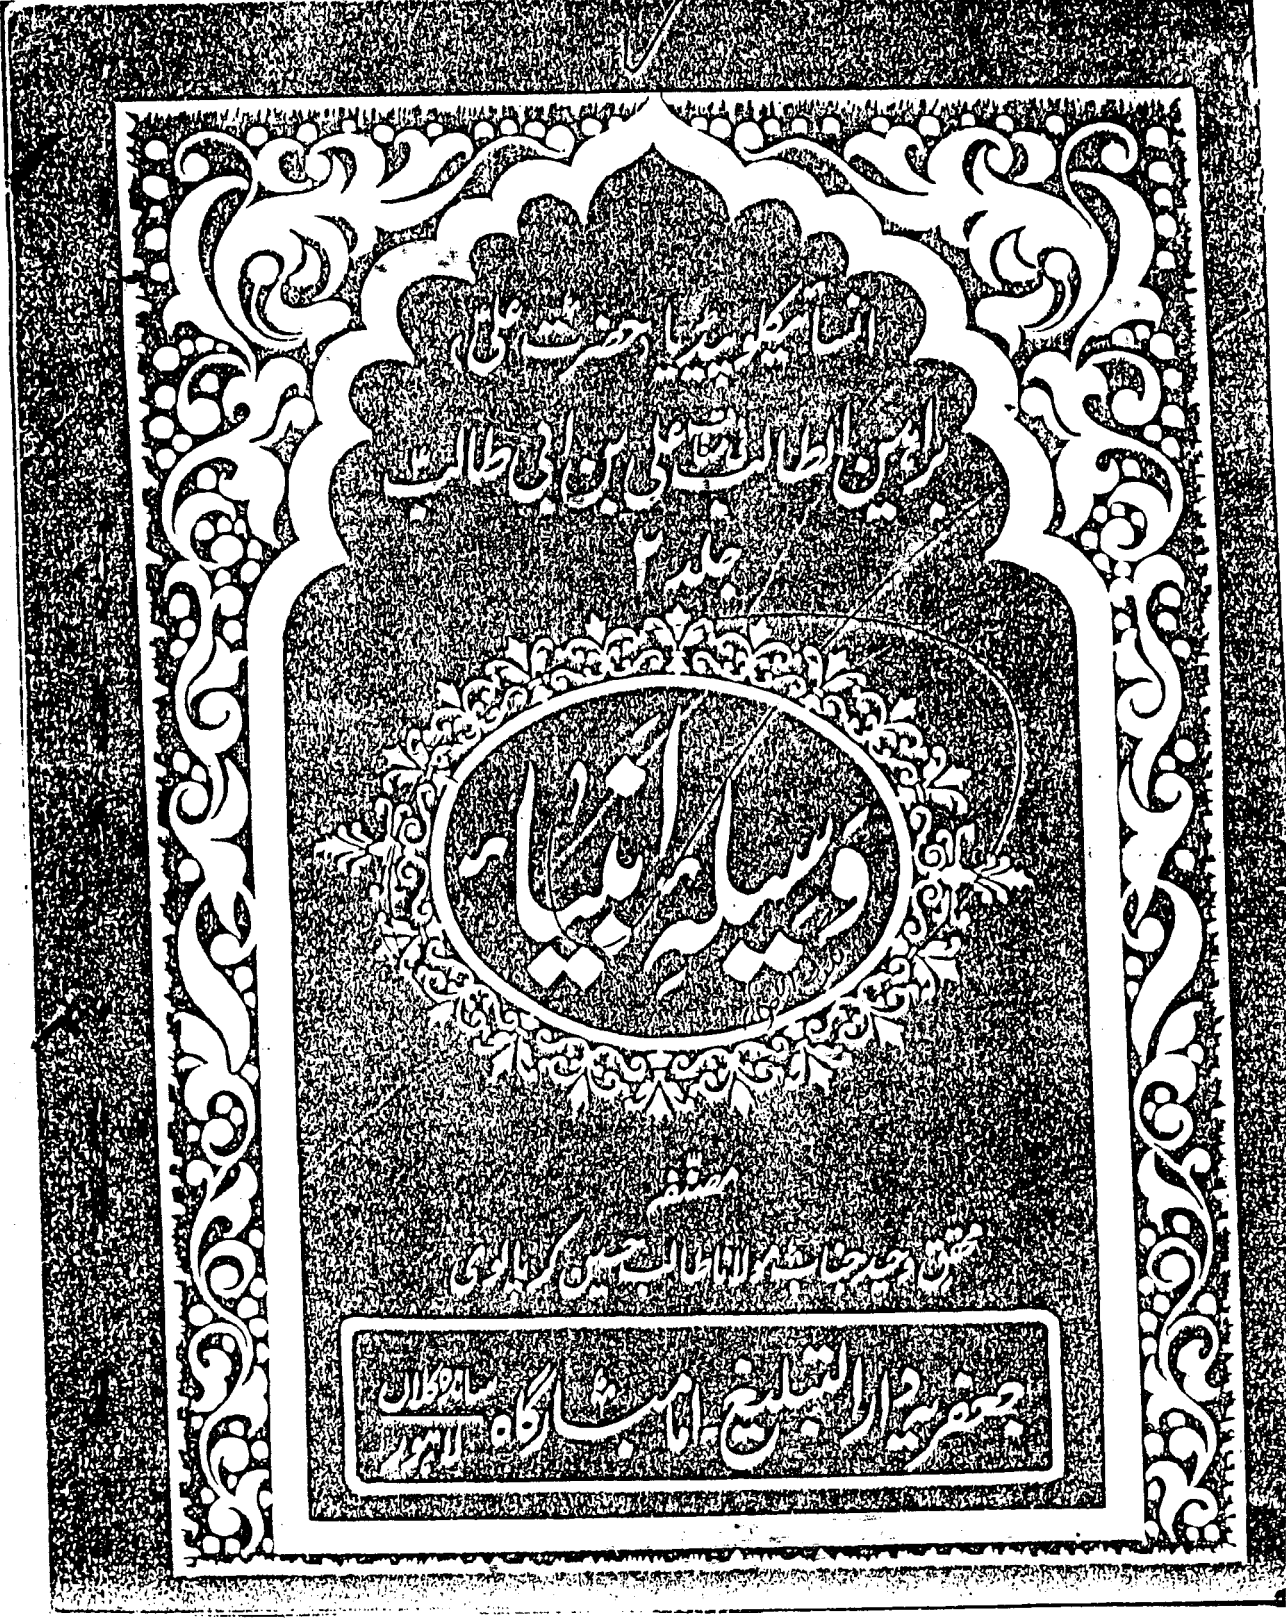 انسائیکلوپیڈیا حضرت علیؑ
براہین الطالب فی مناقب علی بن ابی طالبؑ
جلد ۲
وسیلہِ انبیاء
مصنف
محقق وحید جناب مولانا طالب حسین کرپالوی
جعفریہ دارالتبلیغ۔ امام بارگاہ
ساندہ کلاں
لاہور